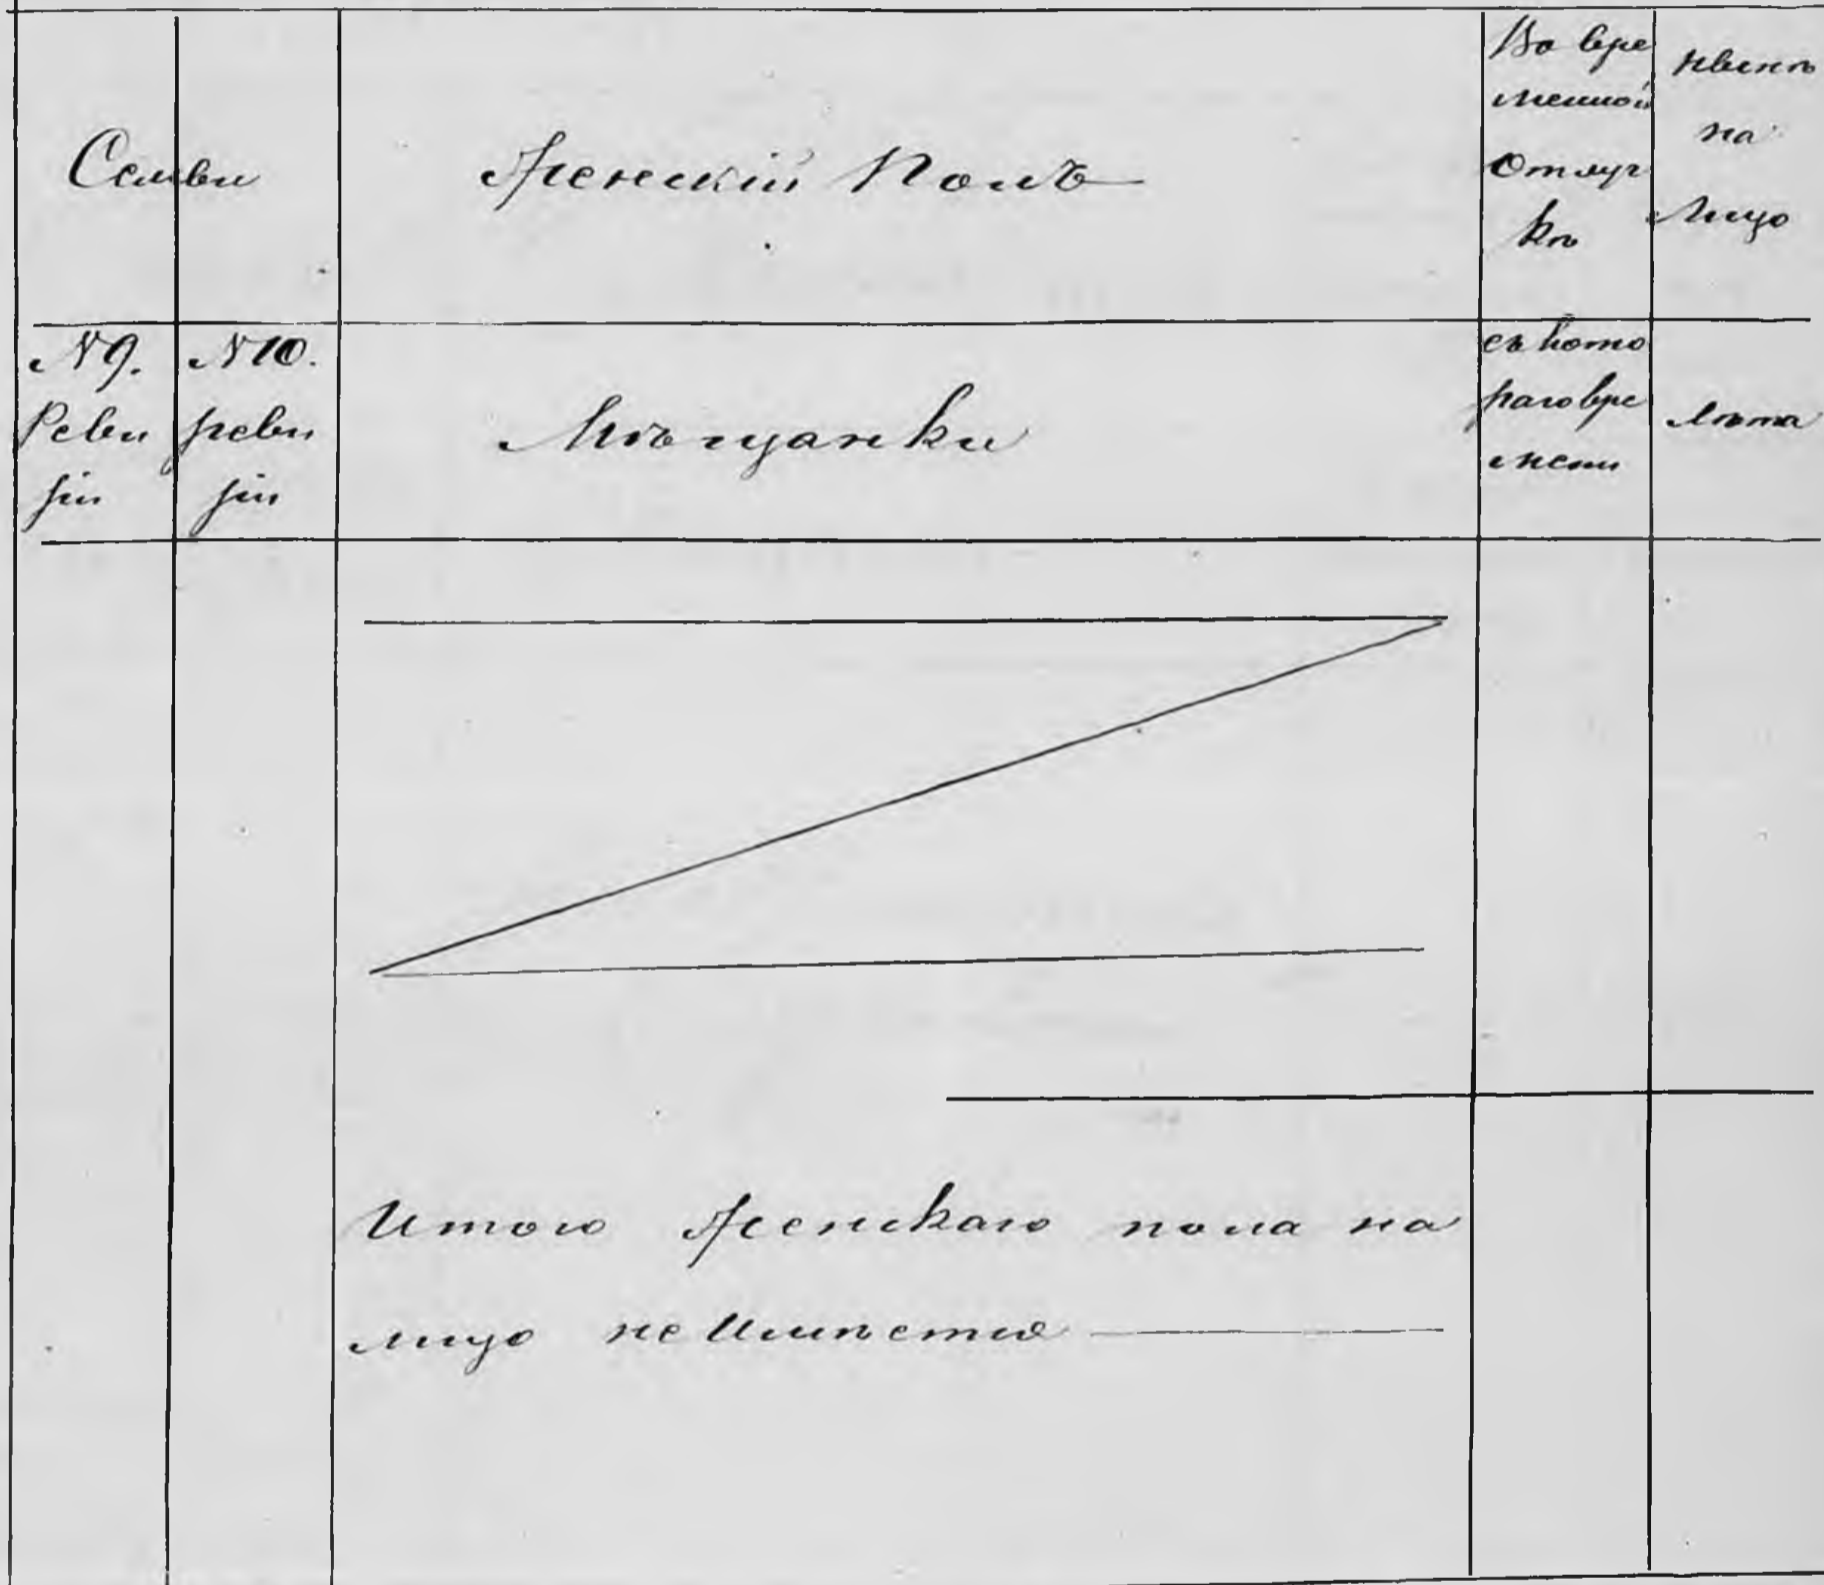 Семьи
Женскій Полъ
Во вре
менной
Отлуч
кѣ
нынѣ
на
Лицо
№ 9.
Реви
зіи
№ 10.
реви
зіи
Мѣщанки
съ кото
раго вре
мени
лѣта
Итого Женскаго пола на
лицо не Имѣется